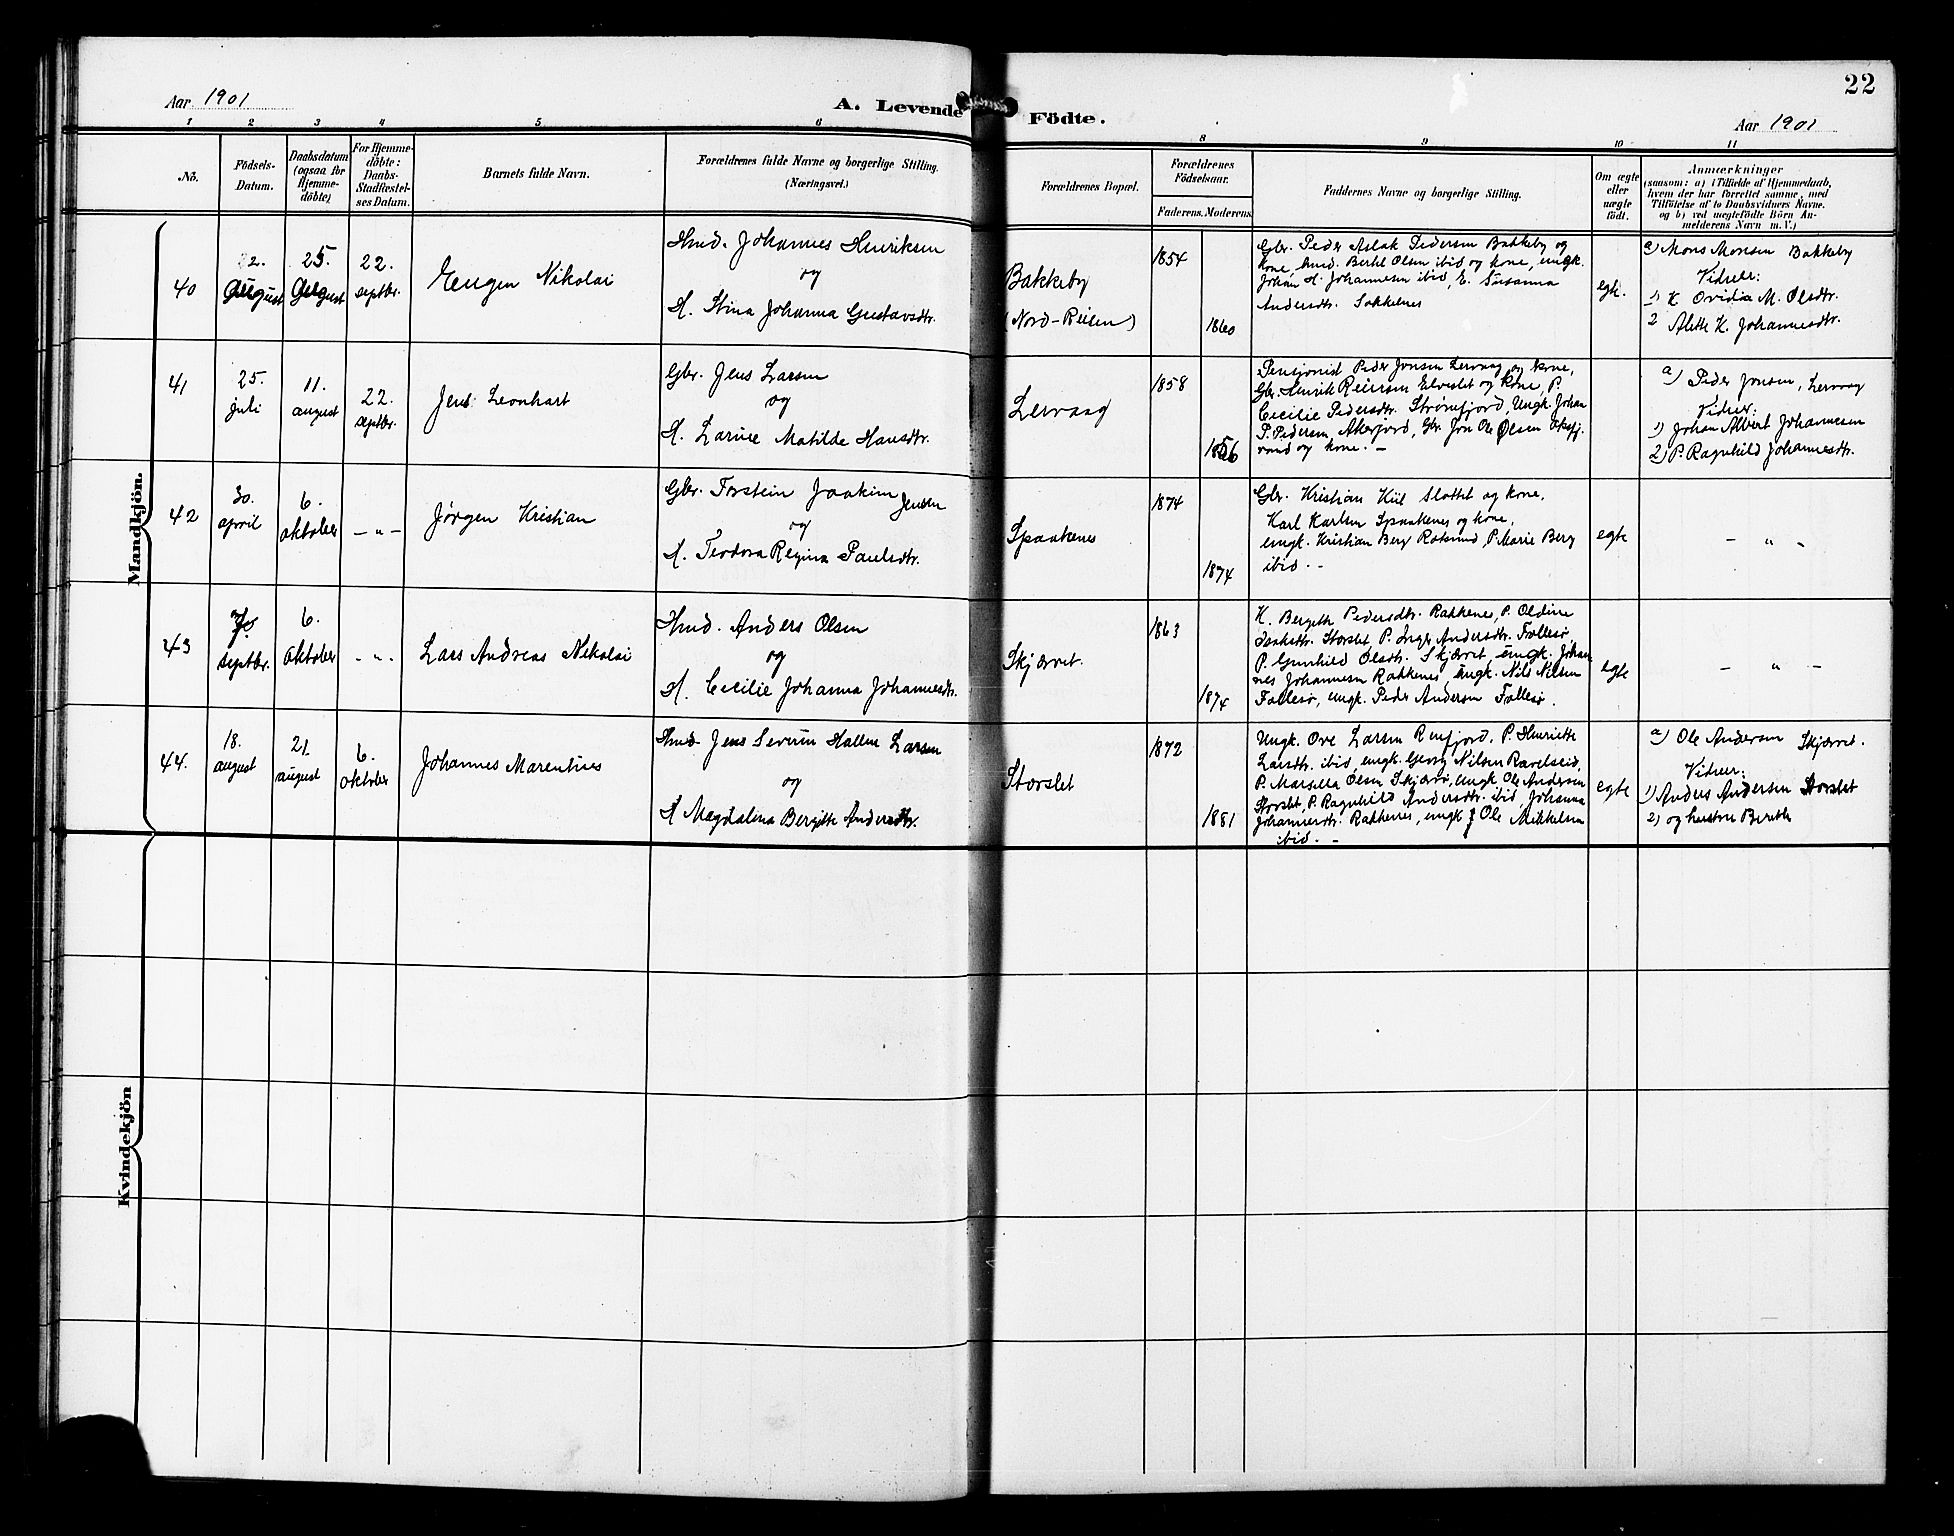 22
Aar 1901
A. Levende Födte.
Aar 1901
1 2 3 4 5 6 8 9 10 11
No.
Födsels-
Datum.
Daabsdatum
(ogsaa for
Hjemme-
döbte)
For Hjemme-
döbte:
Daabs-
Stadfæstel-
ses Datum.
Barnets fulde Navn.
Forældrenes fulde Navne og borgerlige Stilling.
(Næringsvei.)
Forældrenes Bopæl.
Forældrenes
Födselsaar.
Faderens. Moderens.
Faddernes Navne og borgerlige Stilling.
Om ægte
eller
uægte
födt.
Anmærkninger
(saasom: a) i Tilfælde af Hjemmedaab,
hvem der har forrettet samme, med
Tilföielse af to Daabsvidners Navne.
og b) ved uægtefödte Börn An-
melderens Navn m. V.)
Mandkjön.
40
August
25.
August
22.
septbr.
Eugen Nikolai
Hmd. Johannes Henriksen
og
H. Stina Johanna Gustavsdtr.
Bakkeby
(Nord-Reisen)
1854
1860
Gbr. Peder Aslak Pedersen Bakkeby og
kone, hmd. Bertel Olsen ibid og kone, ungk.
Johan A. Johannesen ibid, E. Susanna
Andersdtr. Sokkenes
egt.
a) Mons Monsen Bakkeby
Vidner:
1) K. Ovidia M. Olsdtr.
2 Alette K. Johannesdtr.
41
25.
juli
11.
august
22.
septbr.
Jens Leonhart
Gbr. Jens Larsen
og
H. Larine Matilde Hansdtr.
Lervaag
1858
1856
Pensjonist Peder Jonsen Lervaag og kone,
Gbr. Henrik Reiersen Elvoslet og kone, P.
Cecilie Pedersdtr. Strømfjord, Ungk. Johan
P. Pedersen, Akerfjord, Gbr. Jon Ole Olsen Oksfj.
vand og kone. -
a) Peder Jonsen, Lervaag
Vidner:
1) Johan Albert Johannesen
2) P. Ragnhild Johannesdtr.
42
30.
april
6.
oktober
- " -
Jørgen Kristian
Gbr. Torstein Joakim Jensen
og
H. Teodora Regina Paulsdtr.
Spaakenes
1874
1874
Gbr. Kristian Kiil Slottet og kone,
Karl Karlsen Spaakenes og kone,
ungk. Kristian Berg Rotsund, P. Marie Berg
ibid. -
egte
- " -
43
septbr.
6.
oktober
- " -
Lars Andreas Nikolai
Hmd. Anders Olsen
og
H. Cecilie Johanna Johannesdtr.
Skjærvet.
1863
1874
K. Bergith Pedersdtr. Rakkenes, P. Oldine
Isaksdtr. Storslet P. Inger Andersdtr. Follesø,
P. Gunhild Olsdtr. Skjærvet, ungk. Johan
nes Johannesen Rakkenes, ungk. Nils Nilsen
Follesø, ungk. Peder Andersen Follesø.
egte
- " -
44.
18.
august
21.
august
6.
oktober
Johannes Marentius
Hmd. Jens Severin Hallen Larsen
og
H Magdalena Bergitte Andersdtr.
Storslet
1872
1881
Ungk. Ove Larsen Reinfjord, P. Henriette
Larsdtr. ibid, ungk. Georg Nilsen Ravelseid,
P. Marsella Olsen Skjærø, ungk. Ole Andersen
Storslet, P. Ragnhild Andersdtr. ibid, Johanna
Johannesdtr. Rakkenes, ungk J Ole Mikkelsen
ibid. -
egte
a) Ole Andersen Skjærvet.
Vidner:
1) Anders Andersen Storslet
2) og hustru Berith
Kvindekjön